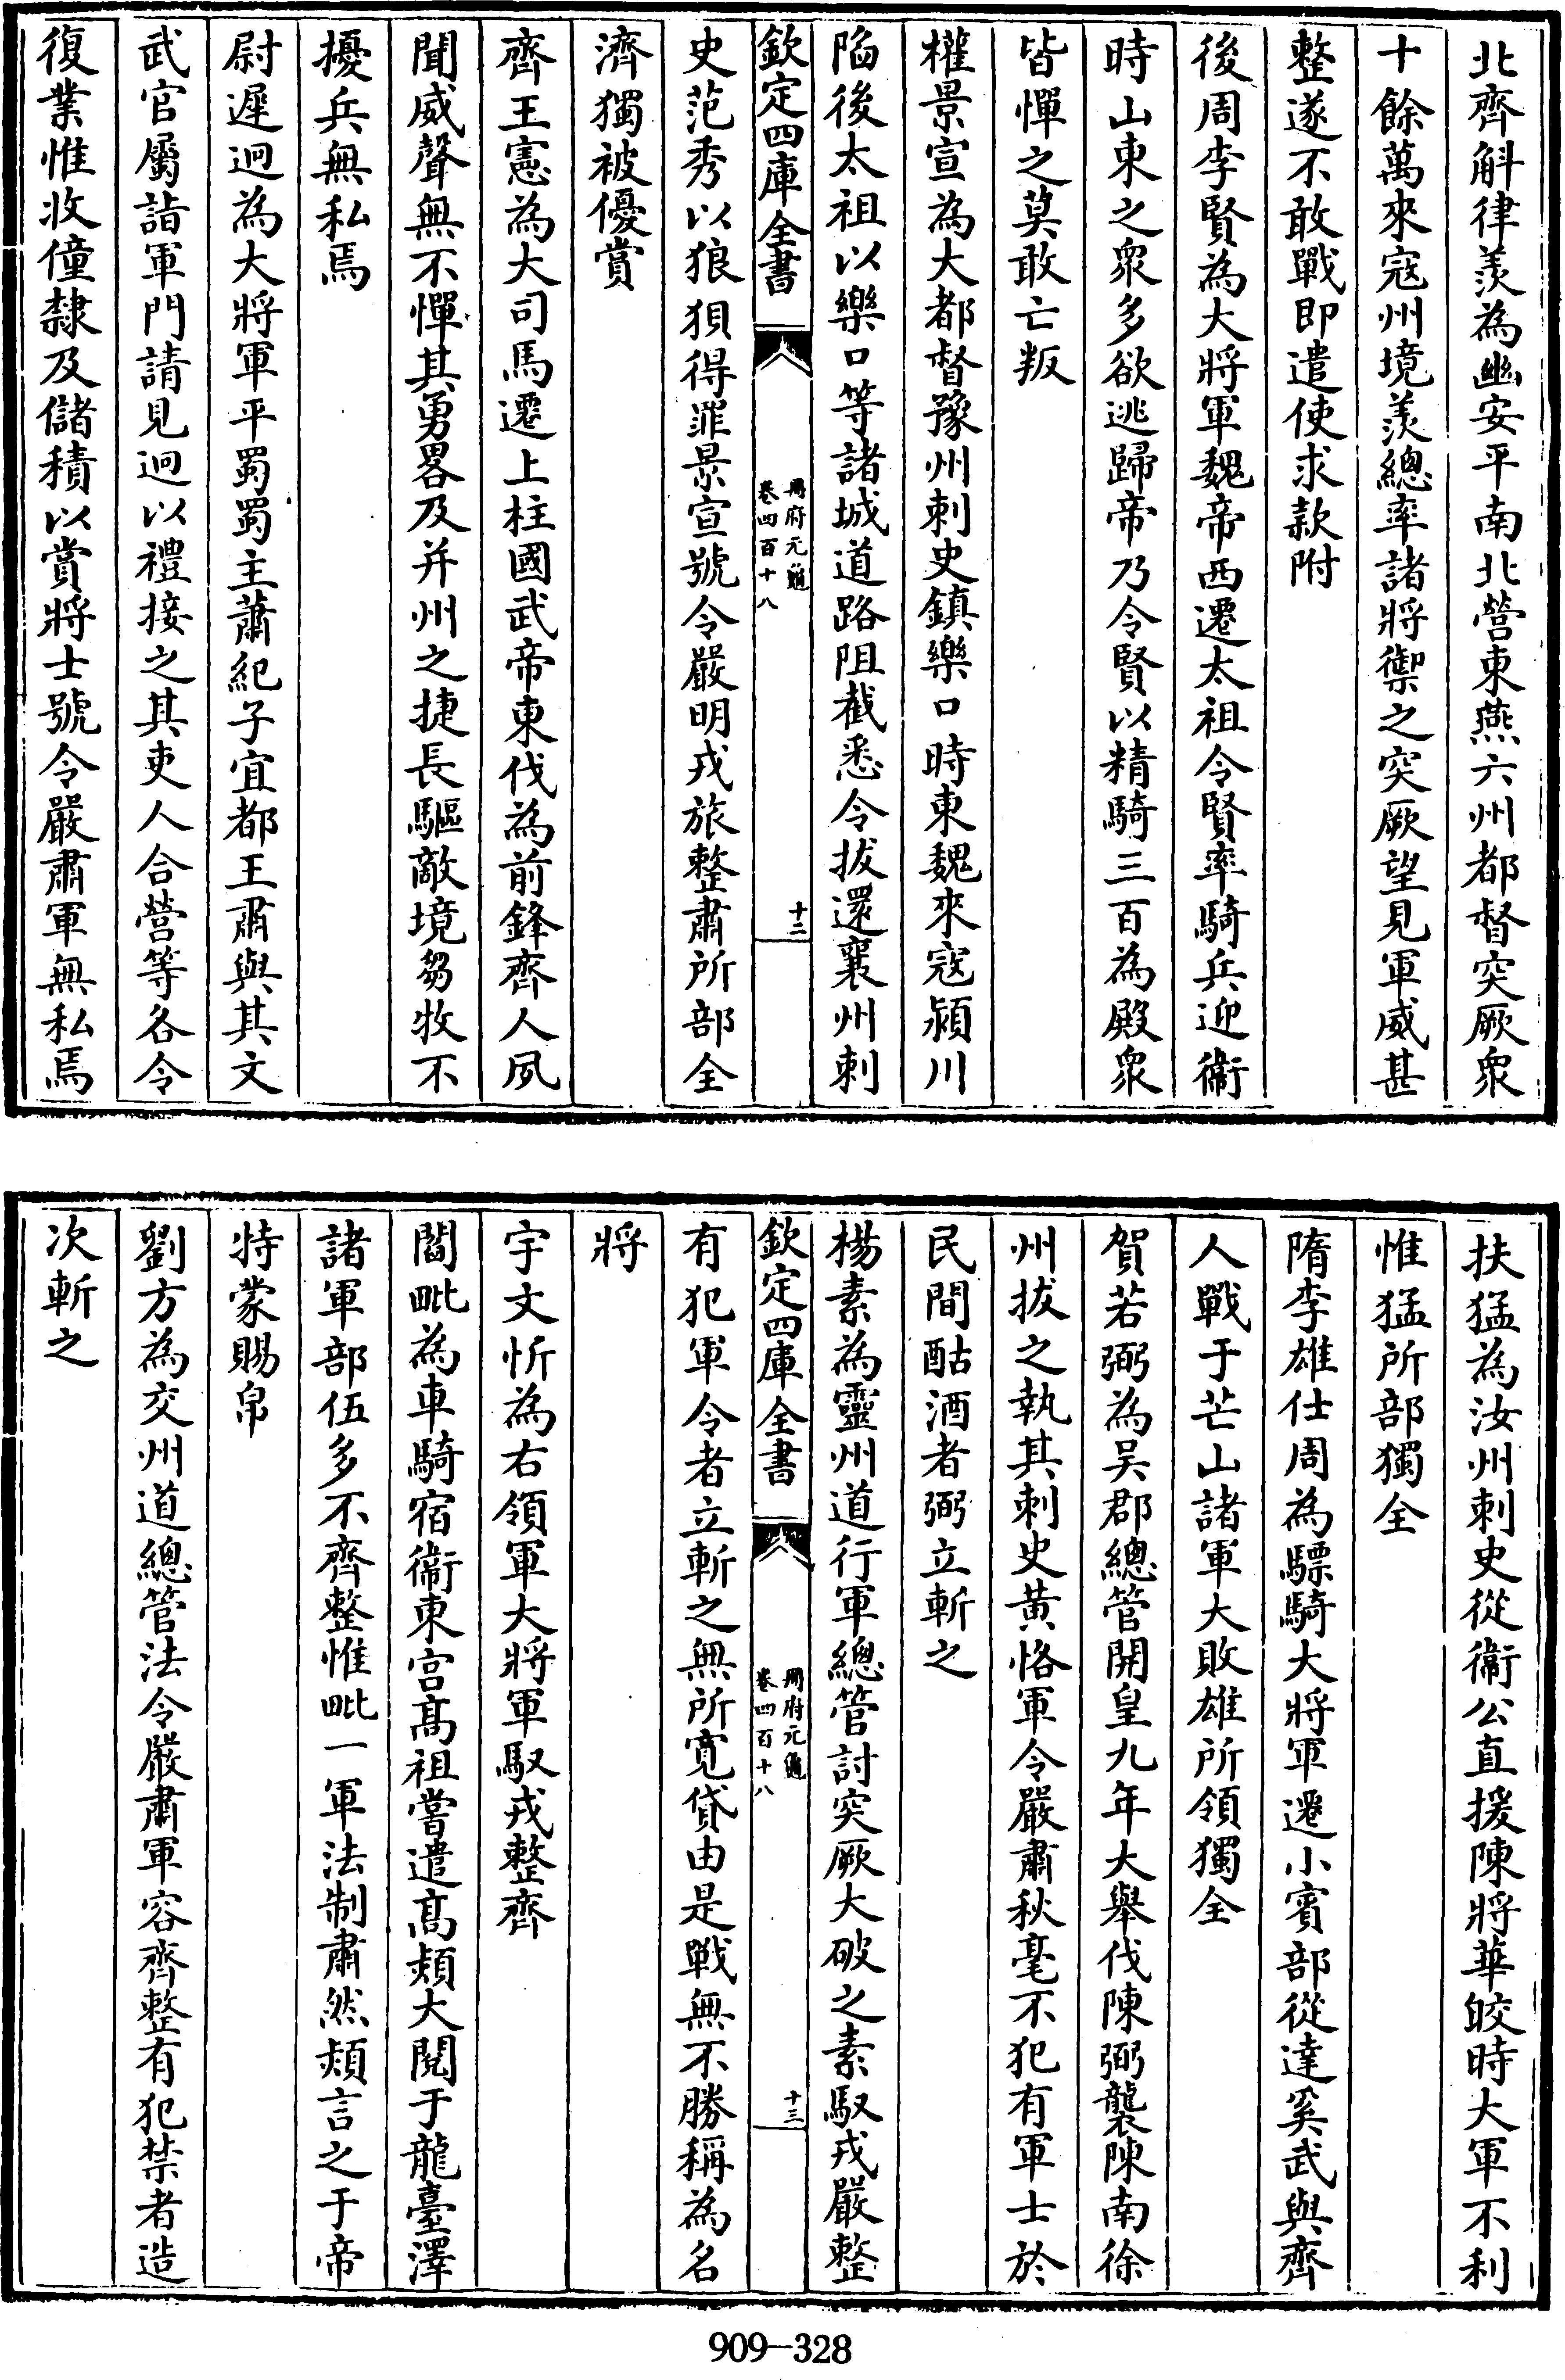 北齊斛律羨為幽安平南北營東燕六州都督突厥衆
十餘萬來寇州境羨總率諸將禦之突厥望見軍威甚
整遂不敢戰即遣使求款附
後周李賢為大將軍魏帝西遷太祖令賢率騎兵迎衞
時山東之衆多欲逃歸帝乃令賢以精騎三百為殿衆
皆憚之莫敢亡叛
權景宣為大都督豫州刺史鎮樂口時東魏來寇潁川
陷後太祖以樂口等諸城道路阻截悉令拔還襄州刺
欽定四庫全書
冊府元龜
卷四百十八
十二
史范秀以狼狽得罪景宣號令嚴明戎旅整肅所部全
濟獨被優賞
齊王憲為大司馬遷上柱國武帝東伐為前鋒齊人夙
聞威聲無不憚其勇畧及并州之捷長驅敵境芻牧不
擾兵無私焉
尉遲迥為大將軍平蜀蜀主蕭紀子宜都王肅與其文
武官屬詣軍門請見迥以禮接之其吏人合營等各令
復業惟收僮隸及儲積以賞將士號令嚴肅軍無私焉
扶猛為汝州刺史從衞公直援陳將華皎時大軍不利
惟猛所部獨全
隋李雄仕周為驃騎大將軍遷小賓部從達奚武與齊
人戰于芒山諸軍大敗雄所領獨全
賀若弼為吳郡總管開皇九年大舉伐陳弼襲陳南徐
州拔之執其刺史黃恪軍令嚴肅秋毫不犯有軍士於
民間酤酒者弼立斬之
楊素為靈州道行軍總管討突厥大破之素馭戎嚴整
欽定四庫全書
冊府元龜
卷四百十八
十三
有犯軍令者立斬之無所寛貸由是戰無不勝稱為名
將
宇文忻為右領軍大將軍馭戎整齊
閻毗為車騎宿衞東宮髙祖嘗遣髙熲大閱于龍臺澤
諸軍部伍多不齊整惟毗一軍法制肅然熲言之于帝
特蒙賜帛
劉方為交州道總管法令嚴肅軍容齊整有犯禁者造
次斬之
909-328